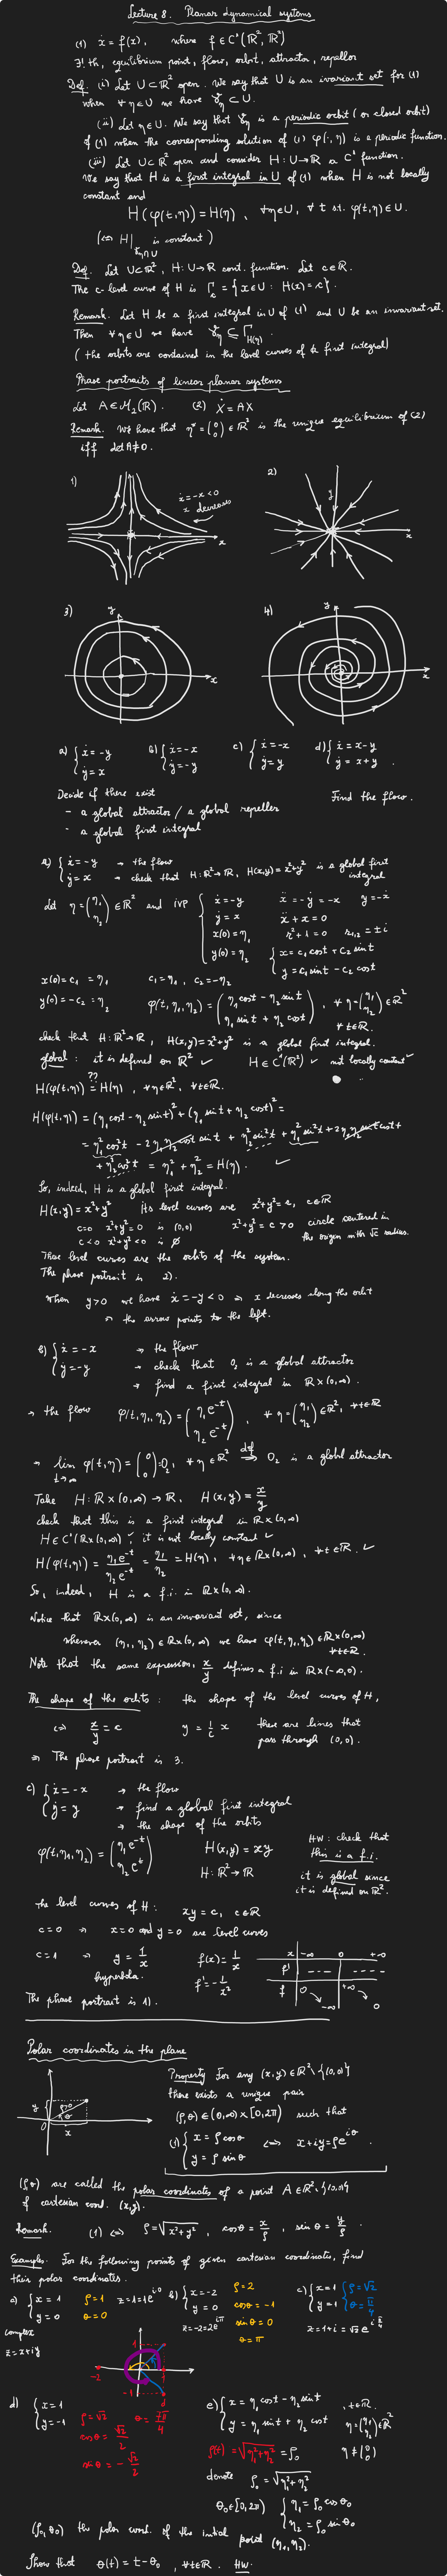 Lecture 8. Planar dynamical systems
(1) ẋ = f(x), where f ∈ C¹(ℝ², ℝ²)
∃! th, equilibrium point, flow, orbit, attractor, repellor
Def. (i) Let U ⊂ ℝ² open. We say that U is an invariant set for (1)
when ∀ η ∈ U we have γ_η ⊂ U.
(ii) Let η ∈ U. We say that γ_η is a periodic orbit (or closed orbit)
of (1) when the corresponding solution of (1) φ(·, η) is a periodic function.
(iii) Let U ⊂ ℝ² open and consider H : U → ℝ a C¹ function.
We say that H is a first integral in U of (1) when H is not locally
constant and
H(φ(t,η)) = H(η), ∀η∈U, ∀ t s.t. φ(t,η) ∈ U.
(⇔ H|_{γ_η ∩ U} is constant)
Def. Let U ⊂ ℝ², H: U → ℝ cont. function. Let c ∈ ℝ.
The c-level curve of H is Γ_c = {x ∈ U : H(x) = c}.
Remark. Let H be a first integral in U of (1) and U be an invariant set.
Then ∀ η ∈ U we have γ_η ⊆ Γ_{H(η)}.
(the orbits are contained in the level curves of a first integral)
Phase portraits of linear planar systems
Let A ∈ M₂(ℝ). (2) Ẋ = AX
Remark. We have that η* = (0 0) ∈ ℝ² is the unique equilibrium of (2)
iff det A ≠ 0.
1) 2)
ẋ = -x < 0
x decreases
x y x
3) y x 4) y x
a) { ẋ = -y b) { ẋ = -x c) { ẋ = -x d) { ẋ = x - y
ẏ = x ẏ = -y ẏ = y ẏ = x + y .
Decide if there exist Find the flow.
- a global attractor / a global repeller
- a global first integral
a) { ẋ = -y → the flow
ẏ = x → check that H: ℝ² → ℝ, H(x,y) = x²+y² is a global first integral
Let η = (η₁ η₂) ∈ ℝ² and IVP { ẋ = -y ẍ = -ẏ = -x y = -ẋ
ẏ = x ẍ + x = 0
x(0) = η₁ r² + 1 = 0 r₁,₂ = ± i
y(0) = η₂ { x = c₁ cos t + c₂ sin t
y = c₁ sin t - c₂ cos t
x(0) = c₁ = η₁ c₁ = η₁, c₂ = -η₂
y(0) = -c₂ = η₂ φ(t, η₁, η₂) = (η₁ cos t - η₂ sin t
η₁ sin t + η₂ cos t), ∀ η = (η₁ η₂) ∈ ℝ²
∀ t ∈ ℝ.
check that H: ℝ² → ℝ, H(x,y) = x²+y² is a global first integral.
global : it is defined on ℝ² ✓ H ∈ C¹(ℝ²) ✓ not locally constant ✓
??
H(φ(t,η)) = H(η), ∀ η ∈ ℝ², ∀ t ∈ ℝ.
H(φ(t,η)) = (η₁ cos t - η₂ sin t)² + (η₁ sin t + η₂ cos t)² =
= η₁² cos² t - 2η₁η₂ cos t sin t + η₂² sin² t + η₁² sin² t + 2η₁η₂ sin t cos t +
+ η₂² cos² t = η₁² + η₂² = H(η). ✓
So, indeed, H is a global first integral.
H(x,y) = x²+y² its level curves are x²+y² = c, c ∈ ℝ
c=0 x²+y² = 0 is (0,0) x²+y² = c > 0 circle centered in
c<0 x²+y² < 0 is ∅ the origin with √c radius.
These level curves are the orbits of the system.
The phase portrait is 2).
When y > 0 we have ẋ = -y < 0 ⇒ x decreases along the orbit
⇒ the arrow points to the left.
b) { ẋ = -x → the flow
ẏ = -y → check that O₂ is a global attractor
→ find a first integral in ℝ × (0,∞).
→ the flow φ(t, η₁, η₂) = (η₁ e^{-t} η₂ e^{-t}), ∀ η = (η₁ η₂) ∈ ℝ², ∀ t ∈ ℝ
→ lim_{t→∞} φ(t, η) = (0 0) = O₂, ∀ η ∈ ℝ² def ⟹ O₂ is a global attractor
Take H : ℝ × (0,∞) → ℝ, H(x,y) = x/y
check that this is a first integral in ℝ × (0,∞)
H ∈ C¹(ℝ × (0,∞)) ✓, it is not locally constant ✓
H(φ(t,η)) = η₁ e^{-t} / η₂ e^{-t} = η₁/η₂ = H(η), ∀ η ∈ ℝ × (0,∞), ∀ t ∈ ℝ. ✓
So, indeed, H is a f.i. in ℝ × (0,∞).
Notice that ℝ × (0,∞) is an invariant set, since
whenever (η₁, η₂) ∈ ℝ × (0,∞) we have φ(t, η₁, η₂) ∈ ℝ × (0,∞)
∀ t ∈ ℝ.
Note that the same expression, x/y defines a f.i. in ℝ × (-∞,0).
The shape of the orbits : the shape of the level curves of H,
⇔ x/y = c y = 1/c x these are lines that
pass through (0,0).
⇒ The phase portrait is 3.
c) { ẋ = -x → the flow
ẏ = y → find a global first integral
→ the shape of the orbits
φ(t, η₁, η₂) = (η₁ e^{-t} η₂ e^{t}) H(x,y) = xy HW: check that
H : ℝ² → ℝ this is a f.i.
it is global since
it is defined on ℝ².
the level curves of H : xy = c, c ∈ ℝ
c=0 ⇒ x=0 and y=0 are level curves
c=1 ⇒ y = 1/x f(x) = 1/x x | -∞ 0 +∞
hyperbola. f' = -1/x² f' | - - - - - - -
f | 0 -∞ +∞ 0
The phase portrait is 1).
Polar coordinates in the plane
Property For any (x,y) ∈ ℝ² \ {(0,0)}
there exists a unique pair
(ρ,θ) ∈ (0,∞) × [0,2π) such that
(1) { x = ρ cos θ ⇔ x+iy = ρe^{iθ} .
y = ρ sin θ
y ρ θ 0 x
(ρ,θ) are called the polar coordinates of a point A ∈ ℝ² \ {(0,0)}
of cartesian coord. (x,y).
Remark. (1) ⇔ ρ = √(x²+y²), cos θ = x/ρ, sin θ = y/ρ .
Examples. For the following points of given cartesian coordinates, find
their polar coordinates.
a) { x = 1 ρ = 1 z = 1 = 1e^{i·0} b) { x = -2 ρ = 2 c) { x = 1 { ρ = √2
y = 0 θ = 0 y = 0 cos θ = -1 y = 1 θ = π/4
complex z = -2 = 2e^{iπ} sin θ = 0 z = 1+i = √2 e^{i π/4}
z = x+iy θ = π
1 -2 -1 1
d) { x = 1 ρ = √2 θ = 7π/4
y = -1 cos θ = √2/2
sin θ = -√2/2
e) { x = η₁ cos t - η₂ sin t , t ∈ ℝ.
y = η₁ sin t + η₂ cos t η = (η₁ η₂) ∈ ℝ²
ρ(t) = √(η₁²+η₂²) = ρ₀ η ≠ (0 0)
denote ρ₀ = √(η₁²+η₂²)
θ₀ ∈ [0,2π) { η₁ = ρ₀ cos θ₀
η₂ = ρ₀ sin θ₀
(ρ₀, θ₀) the polar coord. of the initial point (η₁, η₂).
Show that θ(t) = t - θ₀, ∀ t ∈ ℝ. HW.